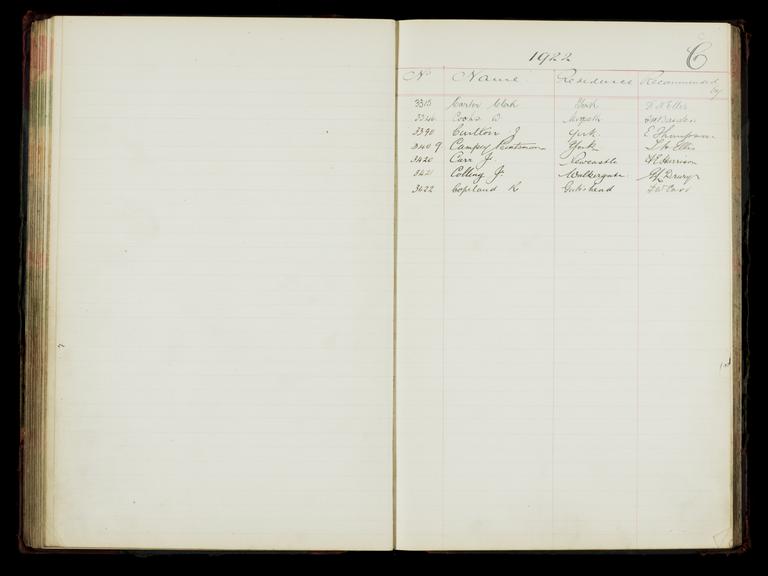 1922 C
No Name Residence Recommended by
3315 Carter Clark York
3346 Cooks W Morpeth
3390 J York E Thompson
3409 Campey York T W Ellis
3420 Carr J Newcastle H E Harrison
3421 Colling J Walkergate Drury
3422 Copeland R Gateshead